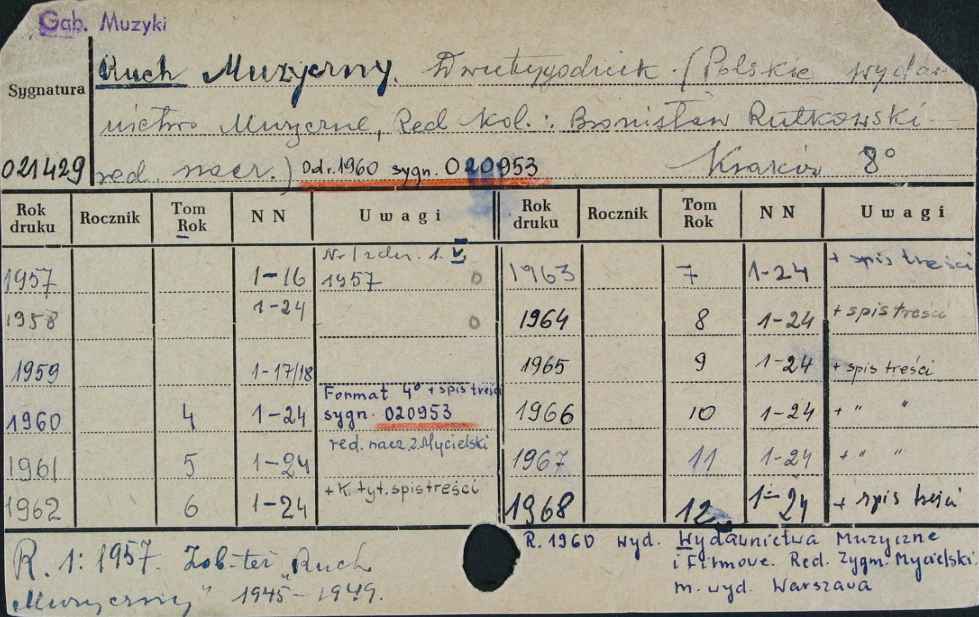 Gab. Muzyki
Ruch Muzyczny. Dwutygodnik. (Polskie wydaw
Sygnatura
nictwo Muzyczne, Red kol.: Bronisław Rutkowski -
021429 red. nacz.) Od r. 1960 sygn. 020953 Kraków 8°
Rok druku Rocznik Tom Rok NN Uwagi Rok druku Rocznik Tom Rok NN Uwagi
1957 1-16 Nr 1 z dn. 1. V. 1957 0 1963 7 1-24 + spis treści
1958 1-24 0 1964 8 1-24 + spis treści
1959 1-17/18 1965 9 1-24 + spis treści
1960 4 1-24 Format 4° + spis treści sygn. 020953 1966 10 1-24 + " "
red. nacz. Z. Mycielski
1961 5 1-24 1967 11 1-24 + " "
1962 6 1-24 + K. tyt. spis treści 1968 12 1-24 + spis treści
R. 1: 1957. Zob. też "Ruch
Muzyczny" 1945-1949.
R. 1960 wyd. Wydawnictwa Muzyczne
i Filmowe. Red. Zygm. Mycielski.
m. wyd. Warszawa